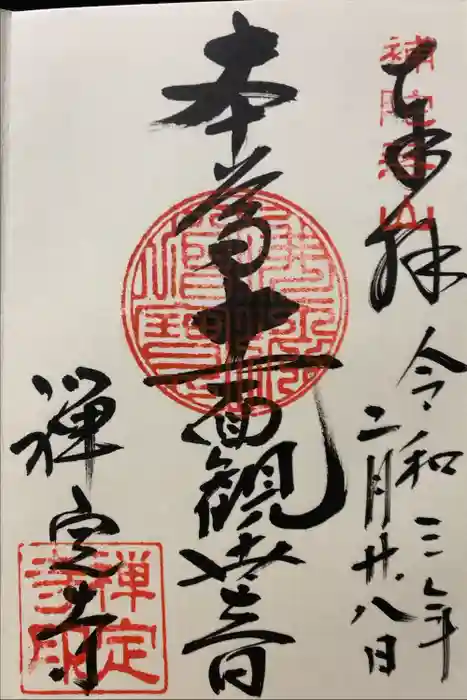 奉拝
補陀落山
令和三年
二月廿八日
本尊十一面観世音
禅定寺
禅定
寺印